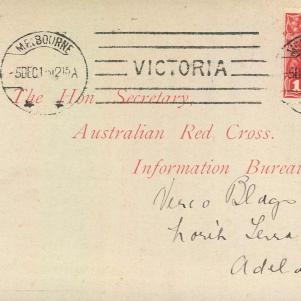 MELBOURNE
VICTORIA
The Hon. Secretary,
Australian Red Cross.
Information Bureau
Verco Bldgs
North Terra
Adela